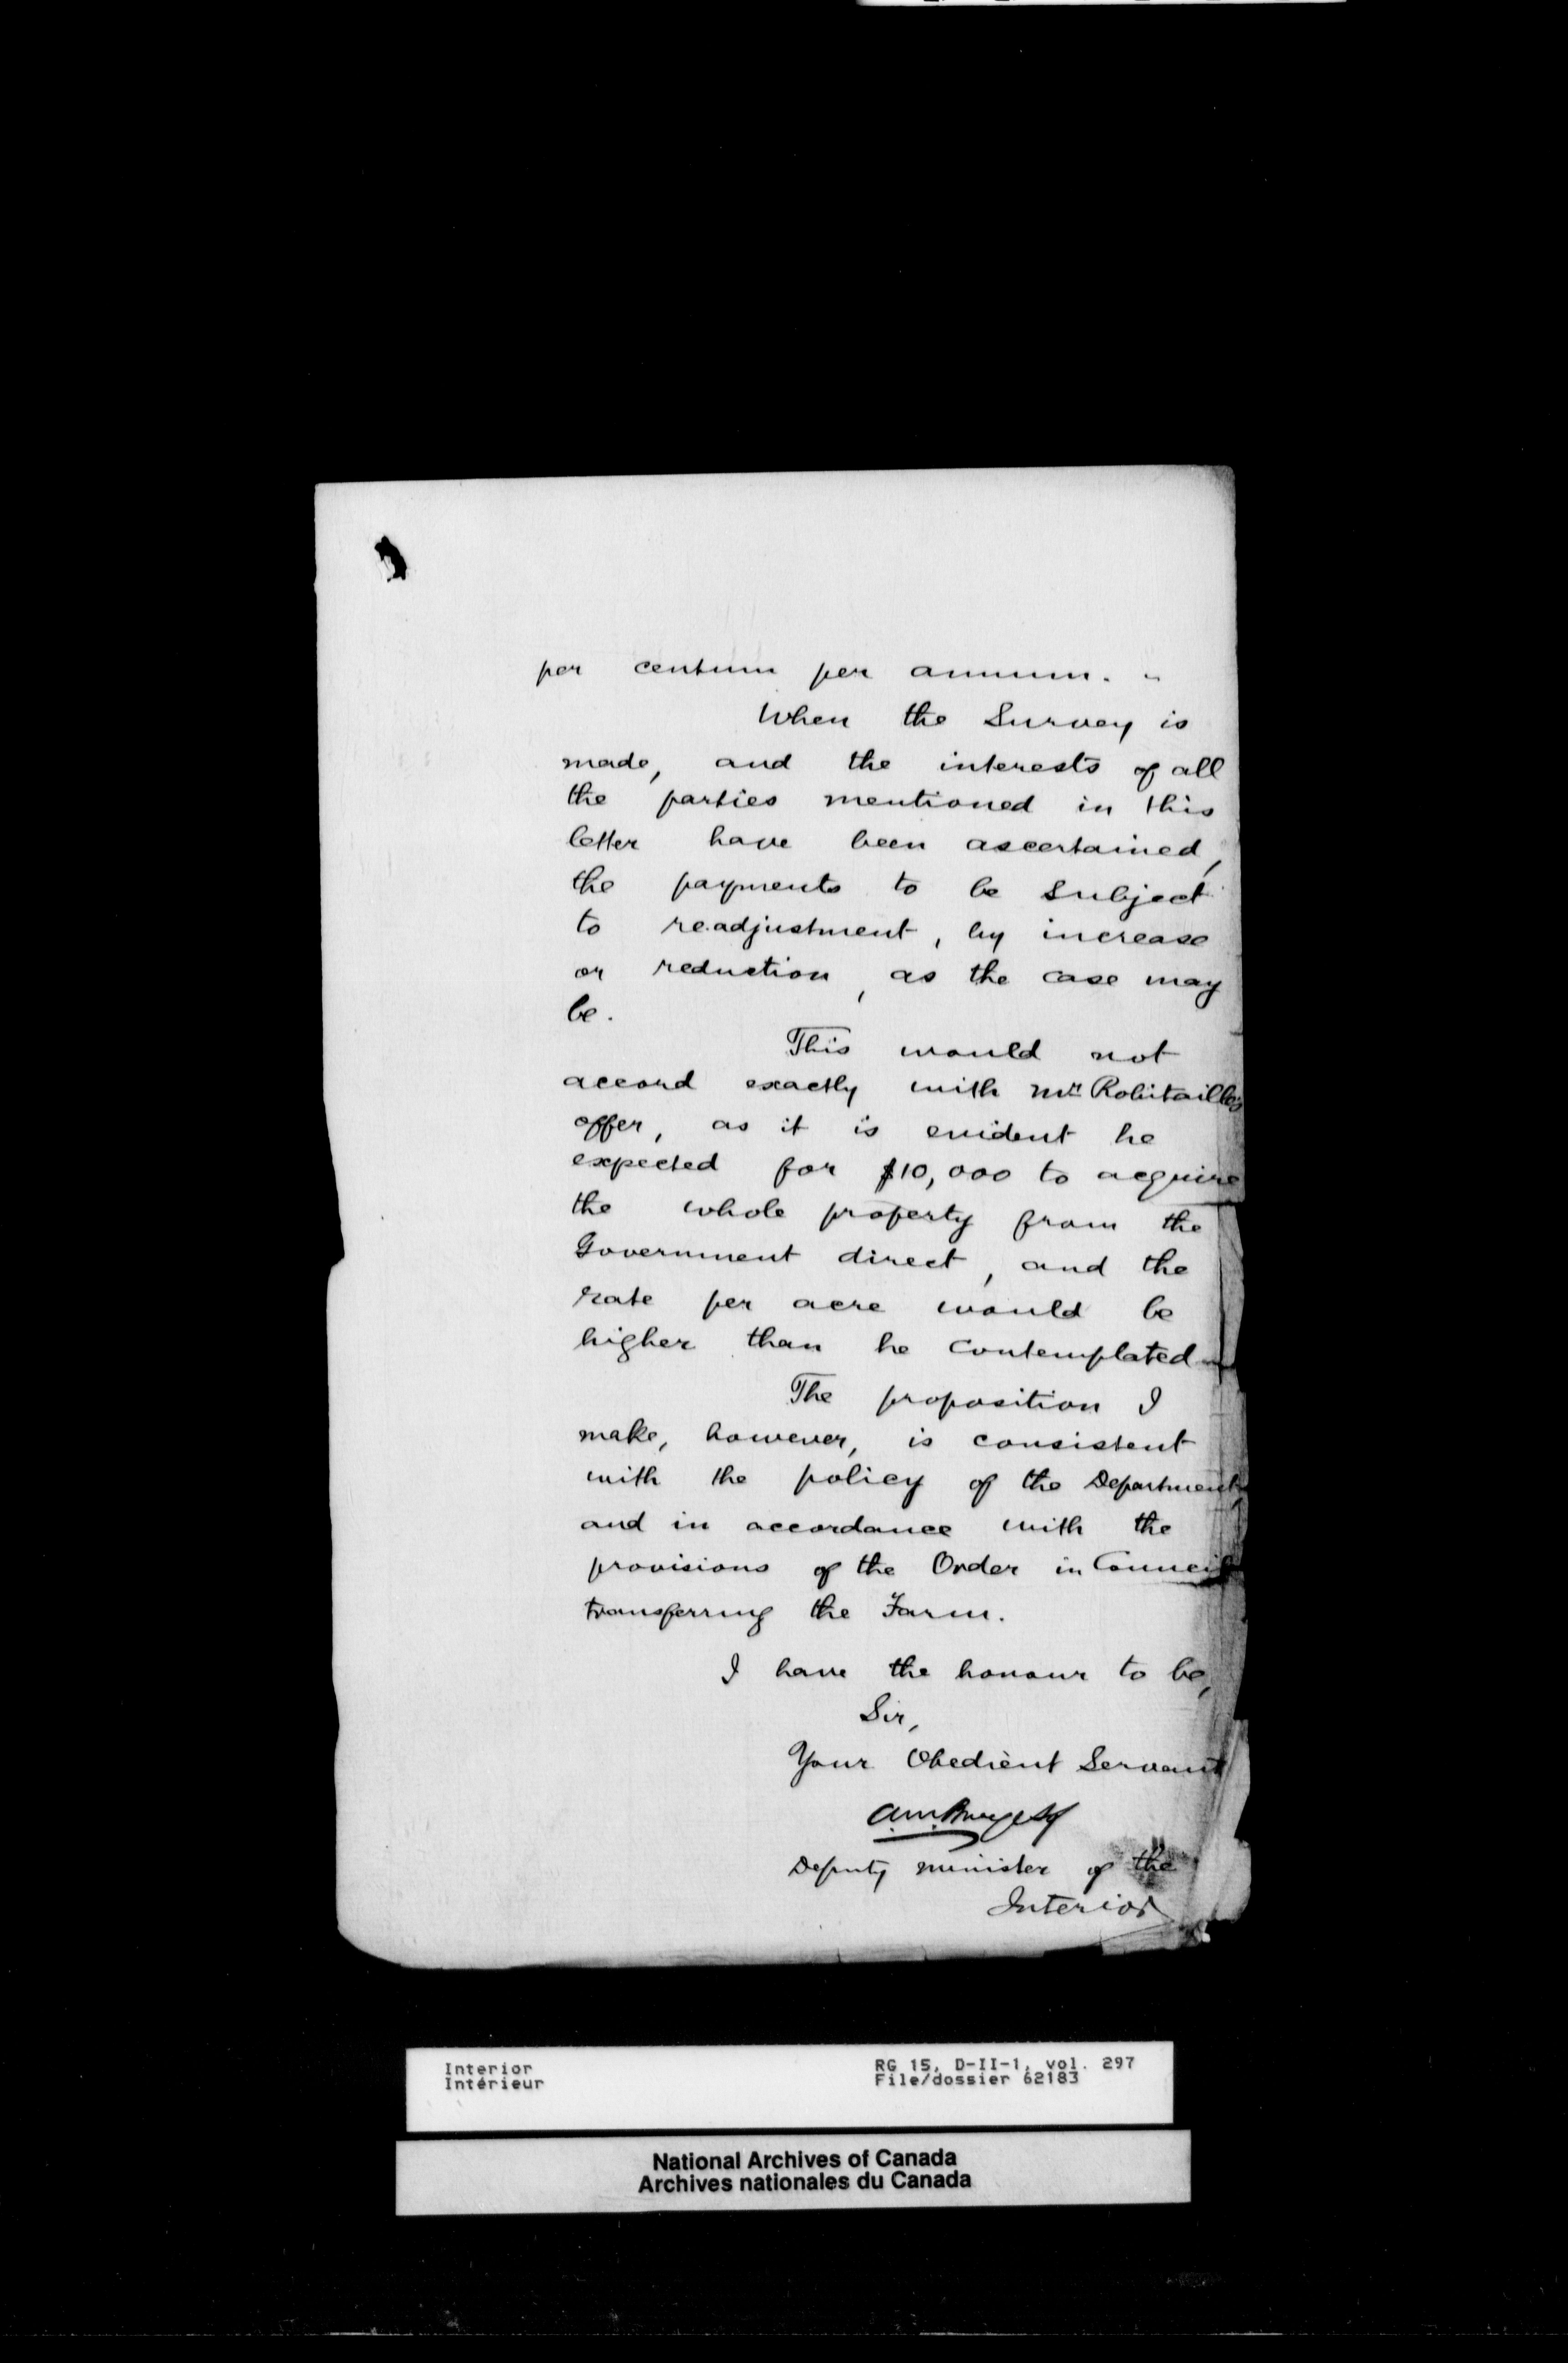 per centum per annum. "
When the Survey is
made, and the interests of all
the parties mentioned in this
letter have been ascertained,
the payments to be subject
to readjustment, by increase
or reduction, as the case may
be.
This would not
accord exactly with Mr Robitaille's
offer, as it is evident he
expected for $10,000 to acquire
the whole property from the
Government direct, and the
rate per acre would be
higher than he contemplated
The proposition I
make, however, is consistent
with the policy of the Department
and in accordance with the
provisions of the Order in Council
transferring the Farm.
I have the honour to be,
Sir,
Your Obedient Servant
A.M. Burgess
Deputy Minister of the
Interior
Interior
Intérieur
RG 15, D-II-1, vol. 297
File/dossier 62183
National Archives of Canada
Archives nationales du Canada